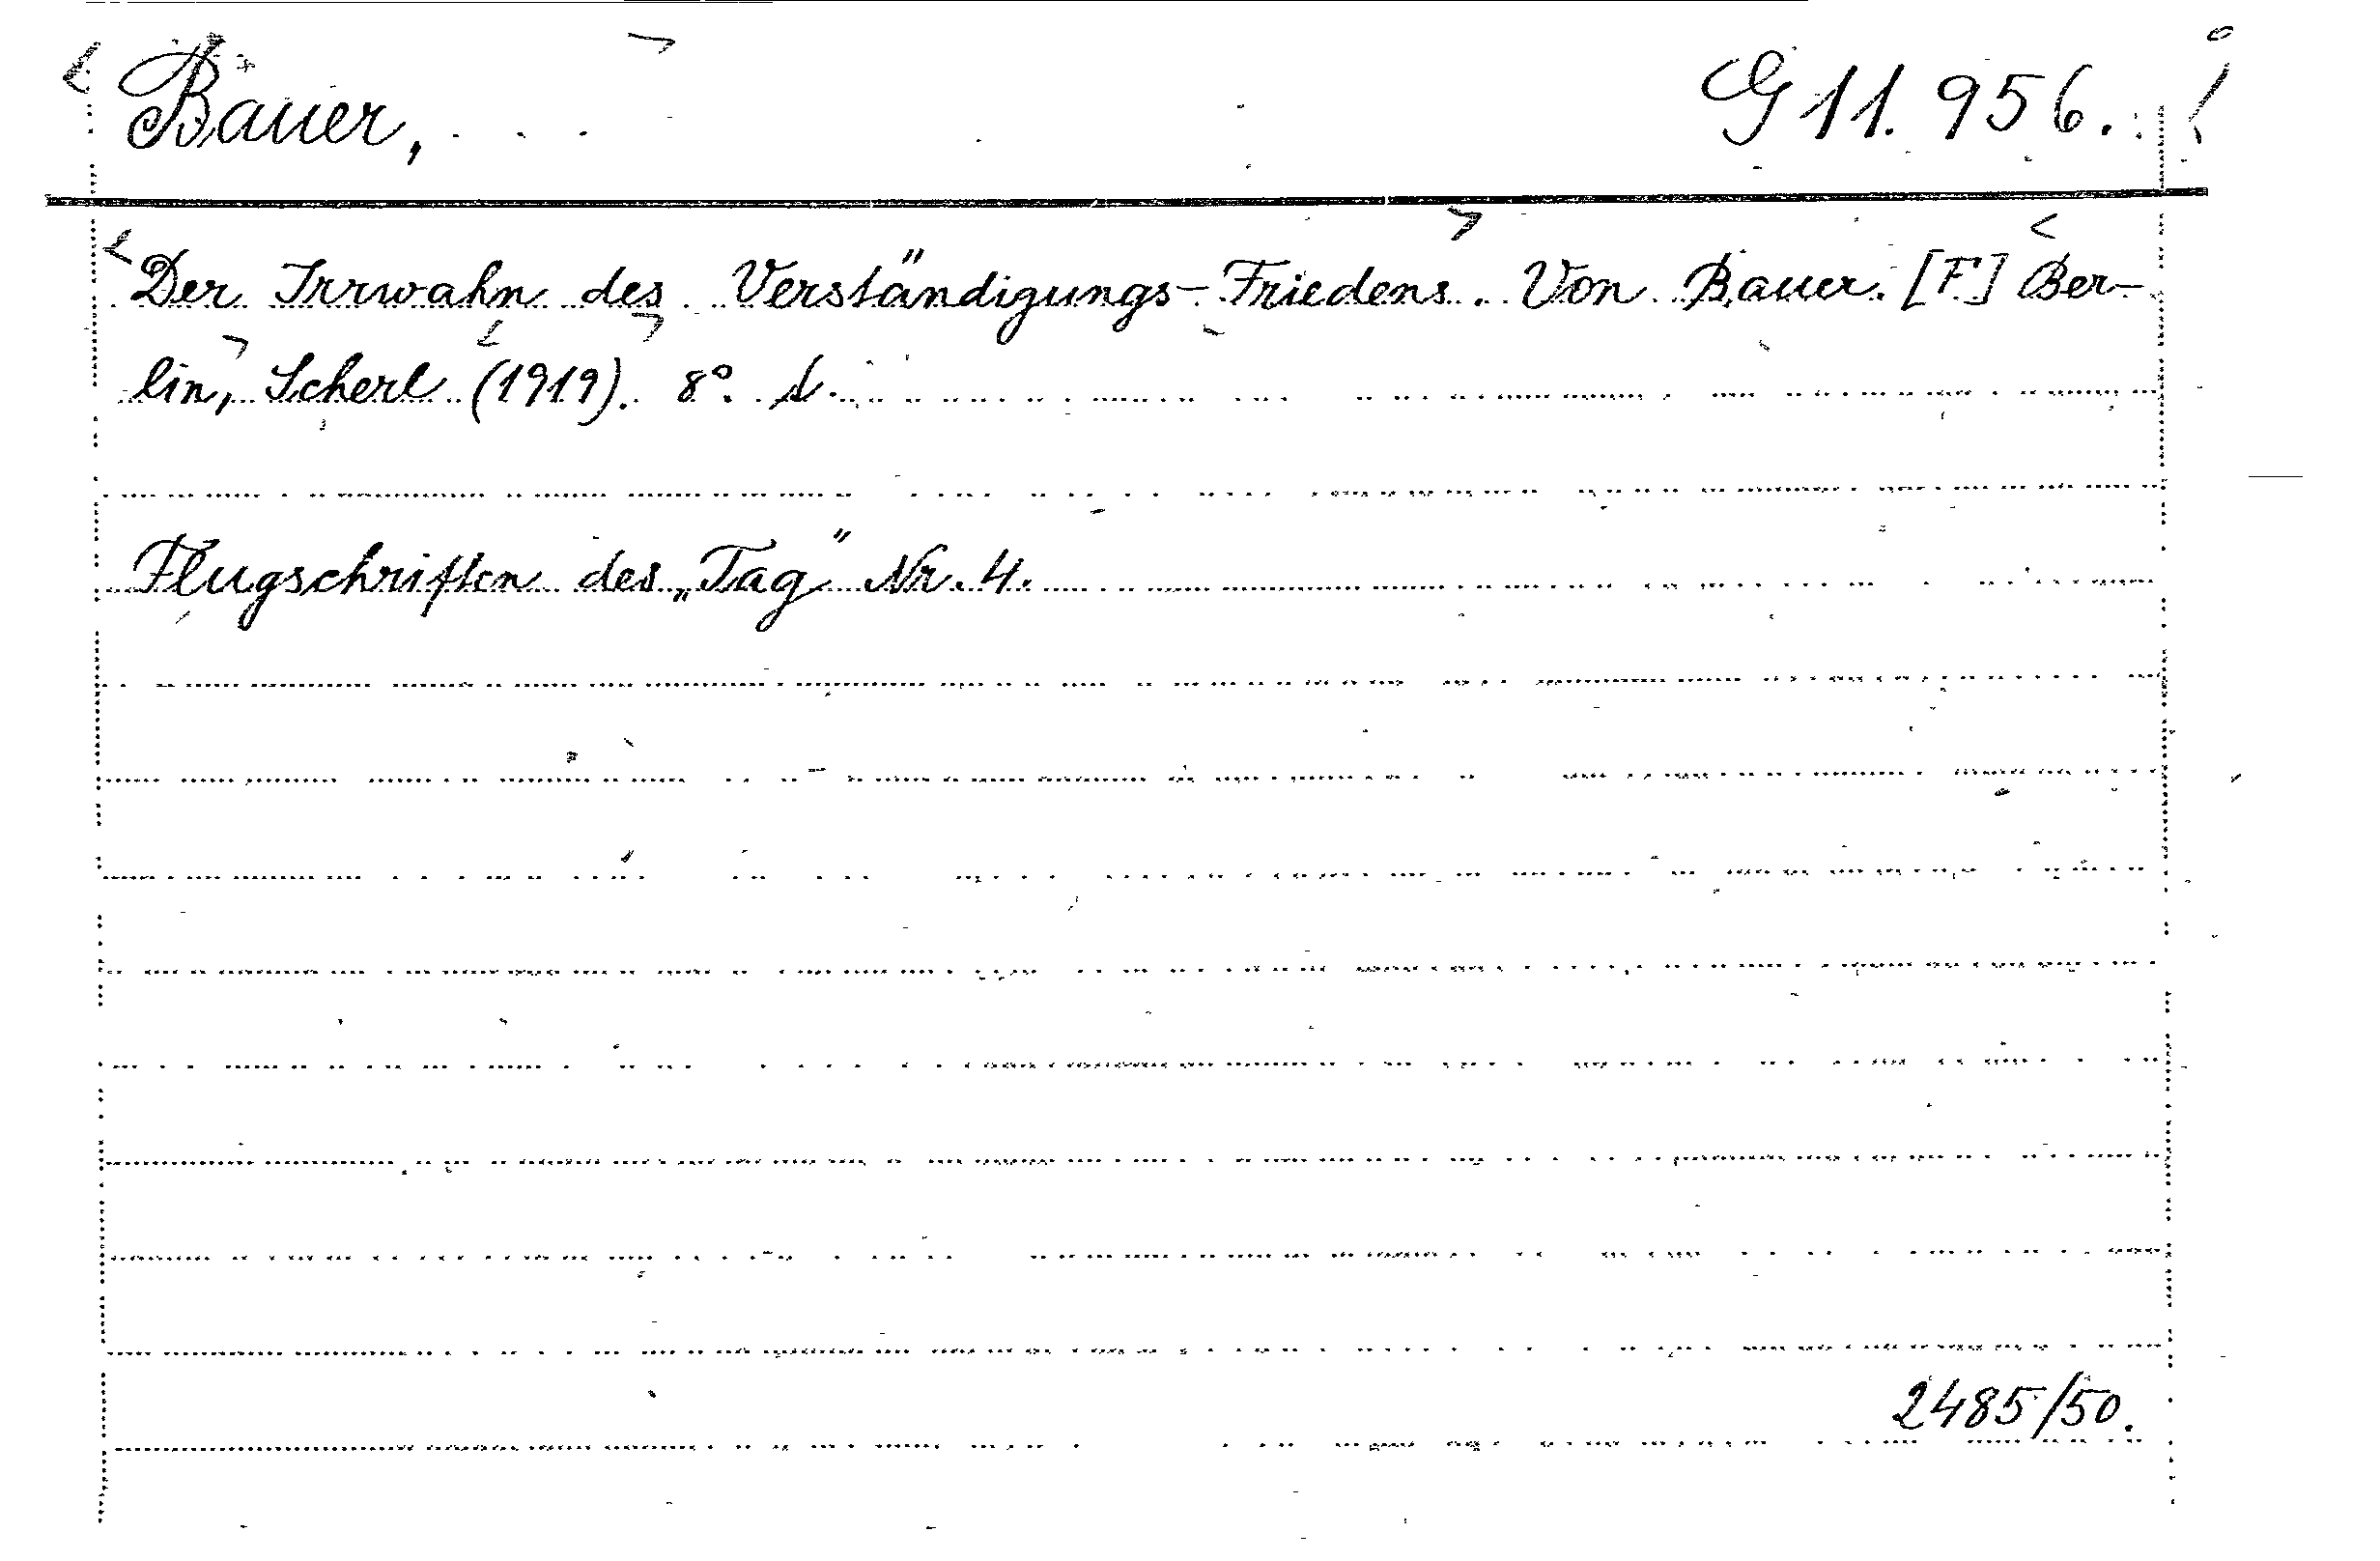 Bauer, . . .
G 11. 956.
Der Irrwahn des Verständigungs-Friedens. Von Bauer. [F.] Ber-
lin, Scherl (1919). 8°.
Flugschriften des „Tag" Nr. 4.
2485/50.